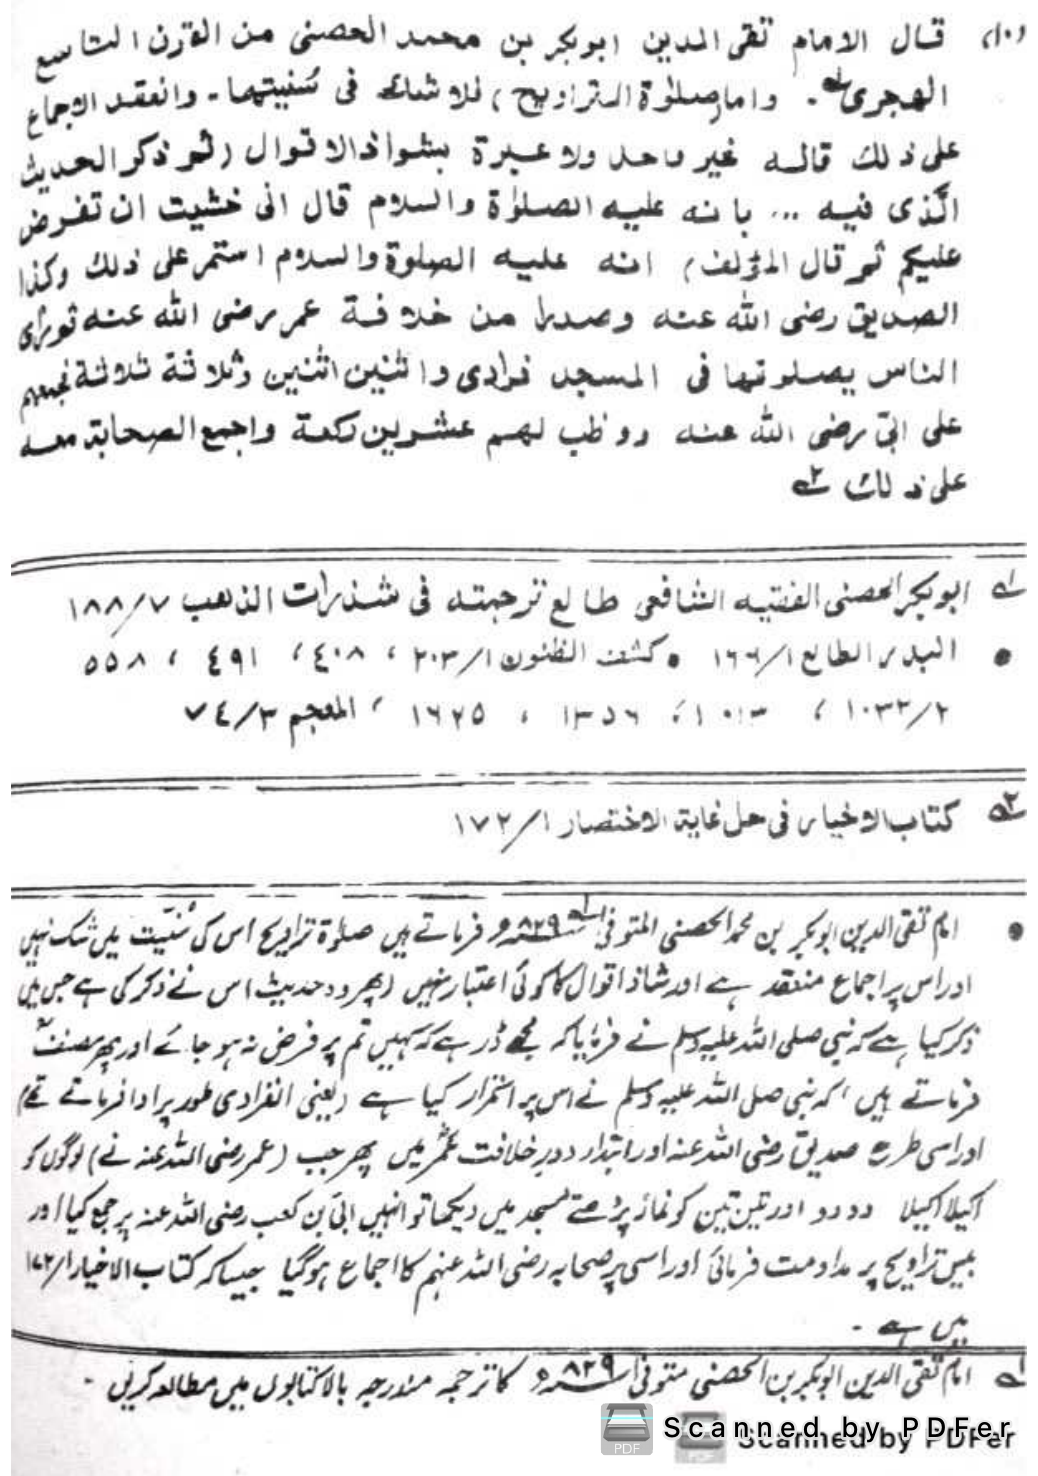 (۱۰) قال الامام تقی الدین ابوبکر بن محمد الحصنی من القرن التاسع
الهجری۱؎. واما (صلٰوة التراویح) فلا شك فی سُنیتها۔ وانعقد الاجماع
علی ذلك قاله غیر واحد ولا عبرة بشواذ الاقوال (ثم ذکر الحدیث
الَّذی فیه ... بانه علیه الصلٰوة والسلام قال انی خشیت ان تفرض
علیکم ثم قال المؤلف) انه علیه الصلوة والسلام استمر علی ذلك وکذا
الصدیق رضی الله عنه وصدرا من خلافة عمر رضی الله عنه ثم رأی
الناس یصلونها فی المسجد فرادی واثنین اثنین وثلاثة ثلاثة فجمعهم
علی ابیّ رضی الله عنه ووظب لهم عشرین رکعة واجمع الصحابة معه
علی ذلك ۲؎
۱؎ ابوبکر الحصنی الفقیه الشافعی طالع ترجمته فی شذرات الذهب ۷/۱۸۸
• البدر الطالع ۱/۱۶۶ • کشف الظنون ۱/۲۰۳ ، ٤۰۸ ، ٤۹۱ ، ۵۵۸
۲/۱۰۳۲ ، ۱۰۱۳ ، ۱۳۵۶ ، ۱۶۲۵ ، المعجم ۳/۷٤
۲؎ کتاب الاخیار فی حل غایة الاختصار ۱/۱۷۲
• امام تقی الدین ابوبکر بن محمد الحصنی المتوفی ۸۲۹ھ۱؎ فرماتے ہیں صلوٰۃ تراویح اس کی سُنّیت میں شک نہیں
اور اس پر اجماع منعقد ہے اور شاذ اقوال کا کوئی اعتبار نہیں (پھر وہ حدیث اس نے ذکر کی ہے جس میں
ذکر کیا ہے کہ نبی صلی اللہ علیہ وسلم نے فرمایا کہ مجھے ڈر ہے کہ کہیں تم پر فرض نہ ہو جائے اور پھر مصنفؒ
فرماتے ہیں) کہ نبی صلی اللہ علیہ وسلم نے اس پر استمرار کیا ہے (یعنی انفرادی طور پر ادا فرماتے تھے)
اور اسی طرح صدیق رضی اللہ عنہ اور ابتداء دورِ خلافت عمرؓ میں پھر جب (عمر رضی اللہ عنہ نے) لوگوں کو
اکیلا اکیلا دو دو اور تین تین کو نماز پڑھتے مسجد میں دیکھا تو انہیں ابی بن کعب رضی اللہ عنہ پر جمع کیا اور
بیس تراویح پر مداومت فرمائی اور اسی پر صحابہ رضی اللہ عنہم کا اجماع ہوگیا جیسا کہ کتاب الاخیار ۱/۱۷۲
میں ہے ۔
۱؎ امام تقی الدین ابوبکر بن الحصنی متوفی ۸۲۹ھ کا ترجمہ مندرجہ بالا کتابوں میں مطالعہ کریں ۔
Scanned by PDFer
Scanned by PDFer